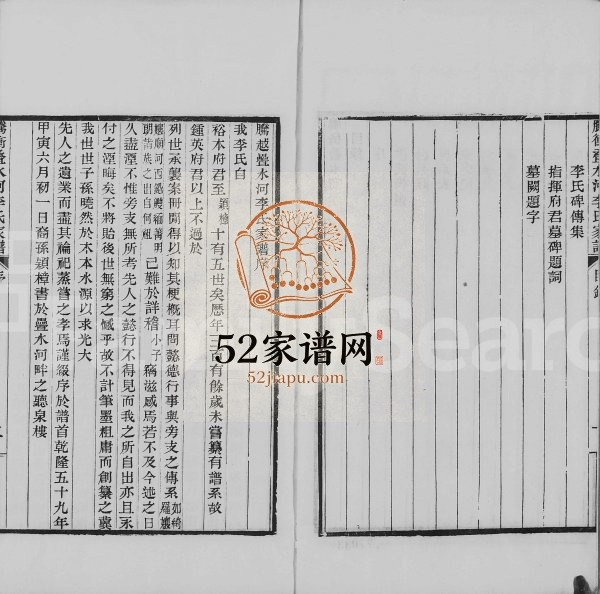 騰衝疊水河李氏家譜 目錄
李氏碑傳集
指揮府君墓碑題詞
墓闕題字
騰越疊水河李氏家譜序
我李氏自
裕本府君至穎樟十有五世矣歷年 百有餘歲未嘗纂有譜系故
鍾英府君以上不過於
列世承襲案冊開得以知其梗概耳問懿德行事與旁支之傳系如綺羅孃
孃廟河西 明詣族之出自何祖已難於詳稽小子竊滋慼焉若不及今述之日
久盡湮不惟旁支無所考先人之懿行不得見而我之所自出亦且永
付之湮晦矣不將貽後世無窮之憾乎故不計筆墨粗庸而創纂之冀
我世世子孫曉然於木本水源以求光大
先人之遺業而盡其禴祀蒸嘗之孝焉謹綴序於譜首乾隆五十九年
甲寅六月初一日裔孫穎樟書於疊水河畔之聽泉樓
騰衝疊水河李氏家譜 序
52家谱网
52jiapu.com